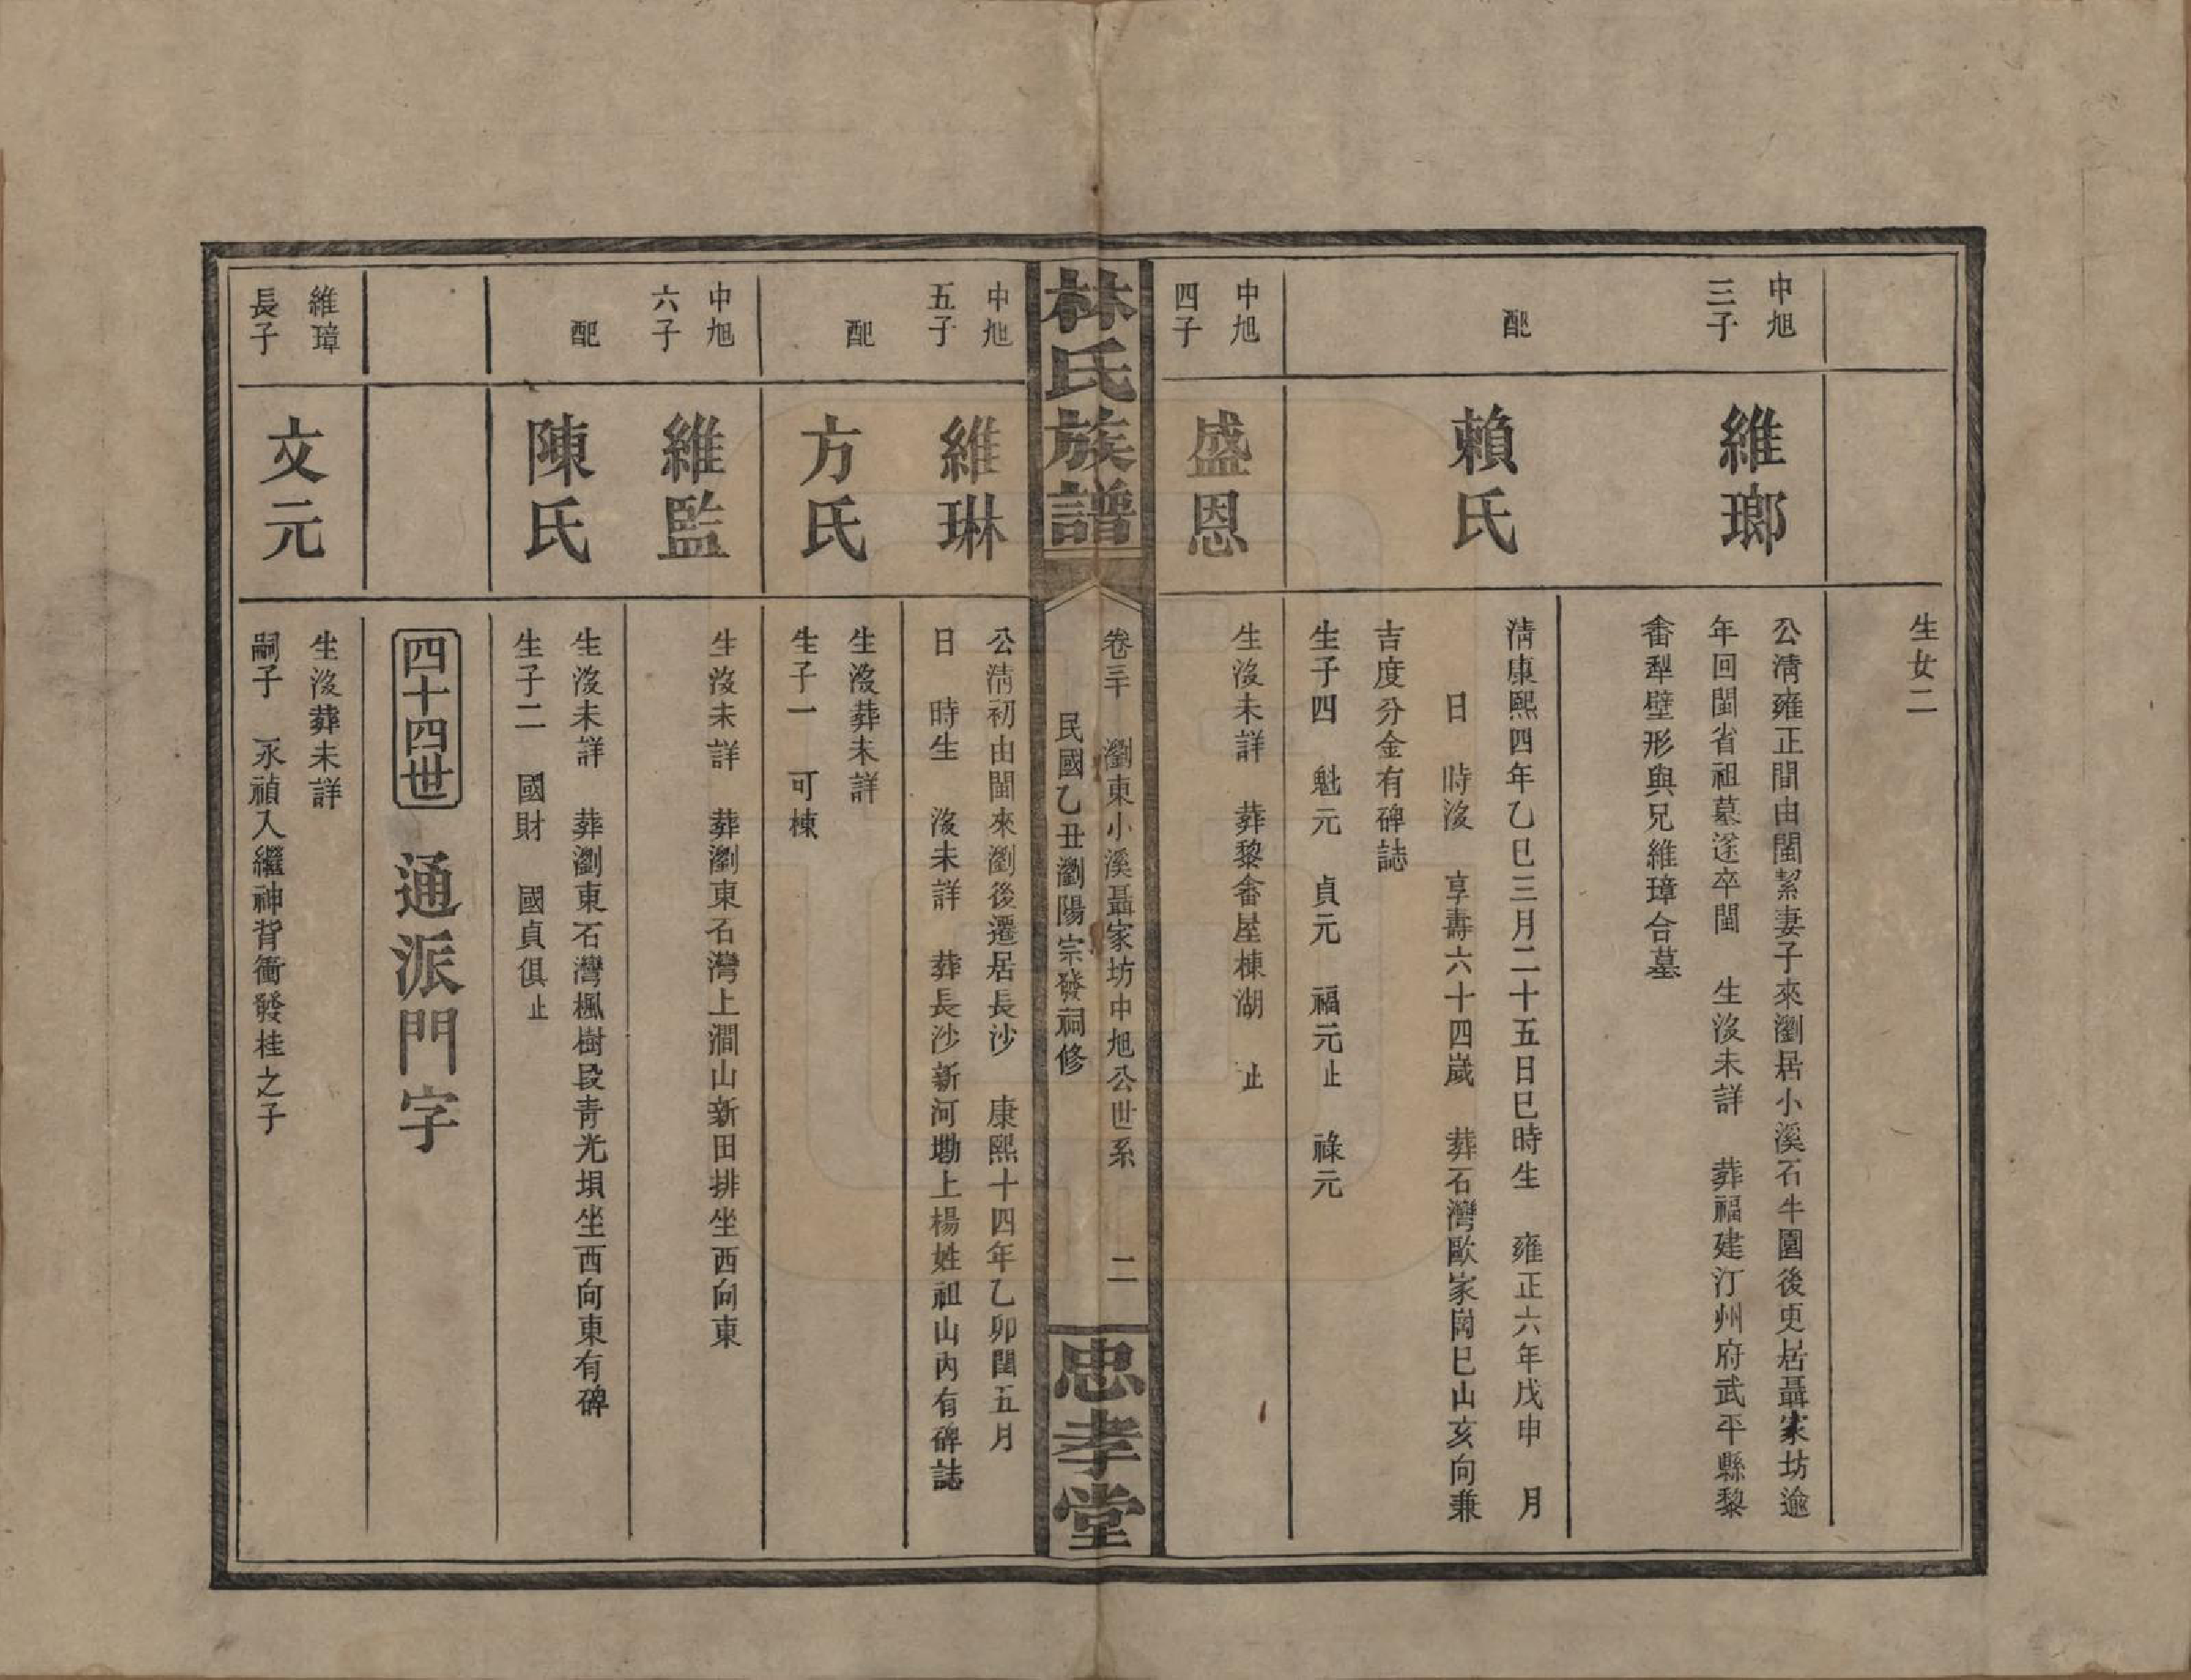 生女二
中旭
三子
維瑯
公清雍正間由閩絜妻子來瀏居小溪石牛園後更居聶家坊逾
年回閩省祖墓遂卒閩　生沒未詳　葬福建汀州府武平縣黎
畬犁壁形與兄維璋合墓
配
賴氏
清康熙四年乙巳三月二十五日巳時生　雍正六年戊申　月
日　時沒　享壽六十四歲　葬石灣歐家崗巳山亥向兼
吉度分金有碑誌
生子四　魁元　貞元　福元止　祿元
中旭
四子
盛恩
生沒未詳　葬黎畬屋棟湖　止
林氏族譜
卷三十　瀏東小溪聶家坊中旭公世系　二
民國乙丑瀏陽宗發祠修
忠孝堂
中旭
五子
維琳
公清初由閩來瀏後遷居長沙　康熙十四年乙卯閏五月
日　時生　沒未詳　葬長沙新河塅上楊姓祖山內有碑誌
配
方氏
生沒葬未詳
生子一　可棟
中旭
六子
維監
生沒未詳　葬瀏東石灣上澗山新田排坐西向東
配
陳氏
生沒未詳　葬瀏東石灣楓樹段青光垻坐西向東有碑
生子二　國財　國貞俱止
四十四世　通派門字
維璋
長子
文元
生沒葬未詳
嗣子　永禎入繼神背衝發桂之子